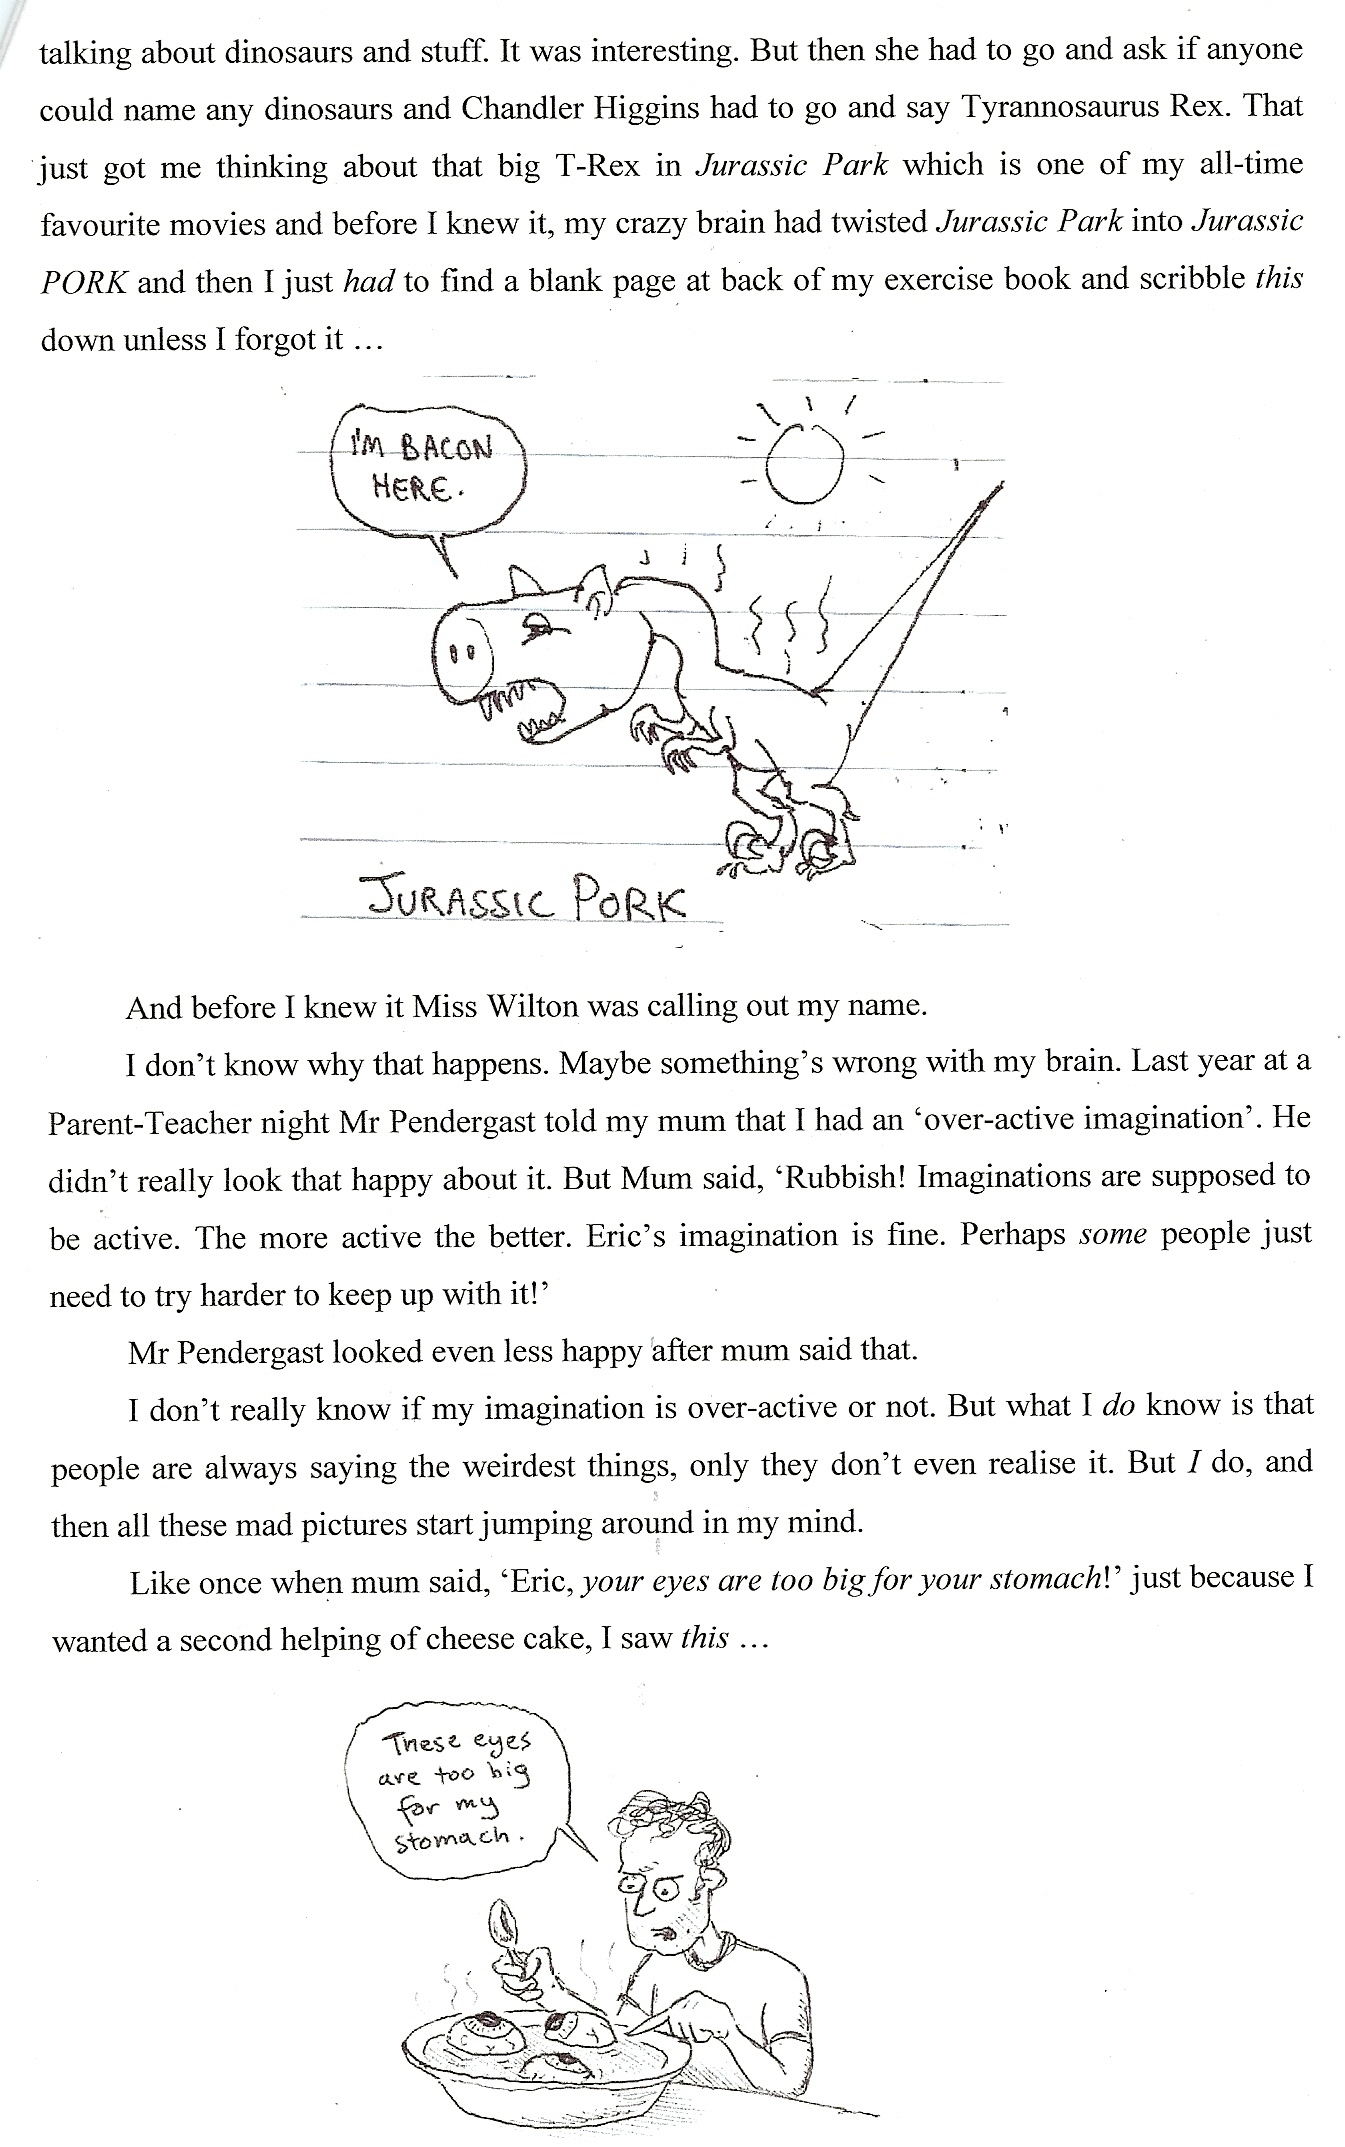 talking about dinosaurs and stuff. It was interesting. But then she had to go and ask if anyone
could name any dinosaurs and Chandler Higgins had to go and say Tyrannosaurus Rex. That
just got me thinking about that big T-Rex in Jurassic Park which is one of my all-time
favourite movies and before I knew it, my crazy brain had twisted Jurassic Park into Jurassic
PORK and then I just had to find a blank page at back of my exercise book and scribble this
down unless I forgot it …
I'M BACON
HERE.
JURASSIC PORK
And before I knew it Miss Wilton was calling out my name.
I don’t know why that happens. Maybe something’s wrong with my brain. Last year at a
Parent-Teacher night Mr Pendergast told my mum that I had an ‘over-active imagination’. He
didn’t really look that happy about it. But Mum said, ‘Rubbish! Imaginations are supposed to
be active. The more active the better. Eric’s imagination is fine. Perhaps some people just
need to try harder to keep up with it!’
Mr Pendergast looked even less happy after mum said that.
I don’t really know if my imagination is over-active or not. But what I do know is that
people are always saying the weirdest things, only they don’t even realise it. But I do, and
then all these mad pictures start jumping around in my mind.
Like once when mum said, ‘Eric, your eyes are too big for your stomach!’ just because I
wanted a second helping of cheese cake, I saw this …
These eyes
are too big
for my
stomach.